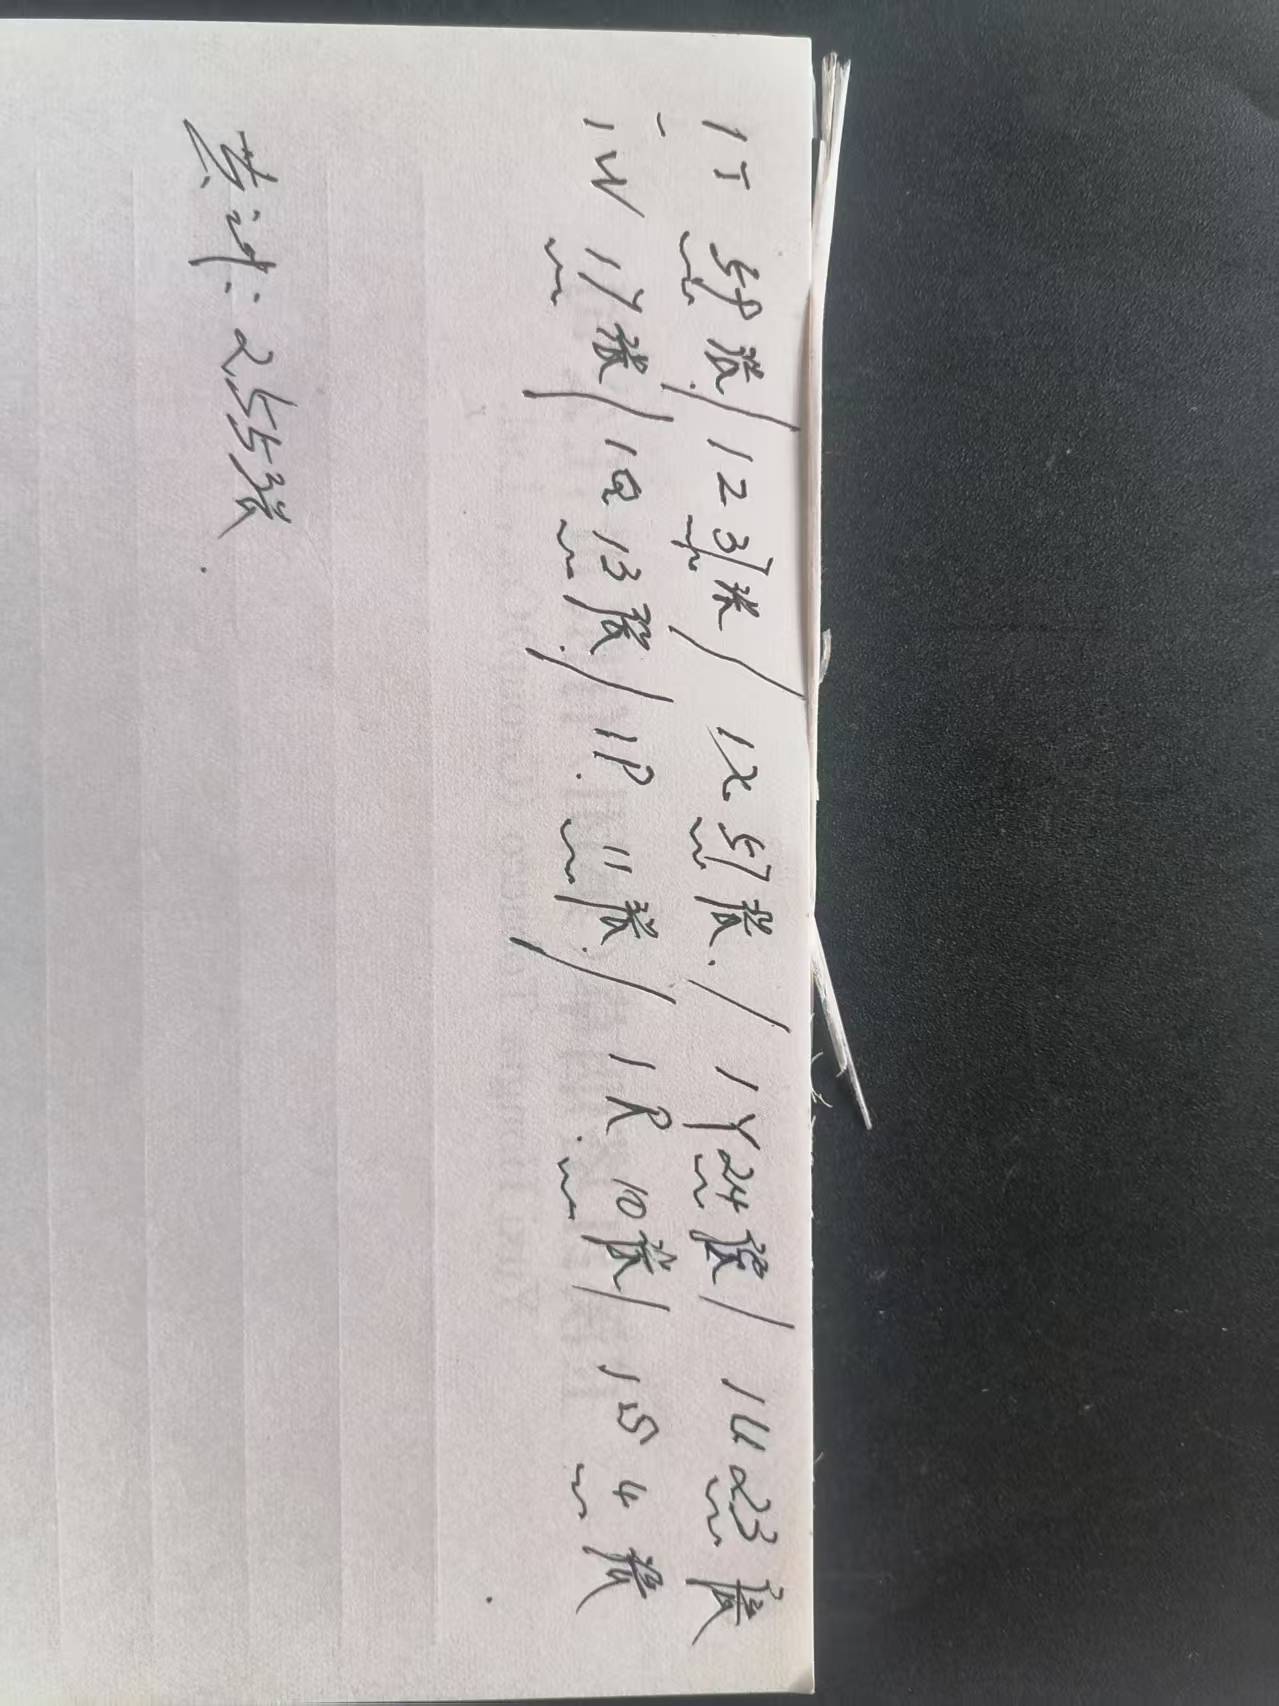 1T 59张/1Z 37张/1X 57张./1Y 24张/1U 23张
1W 17张/1Q 13张./1P. 11张./1R. 10张/1S 4张
共计:255张.